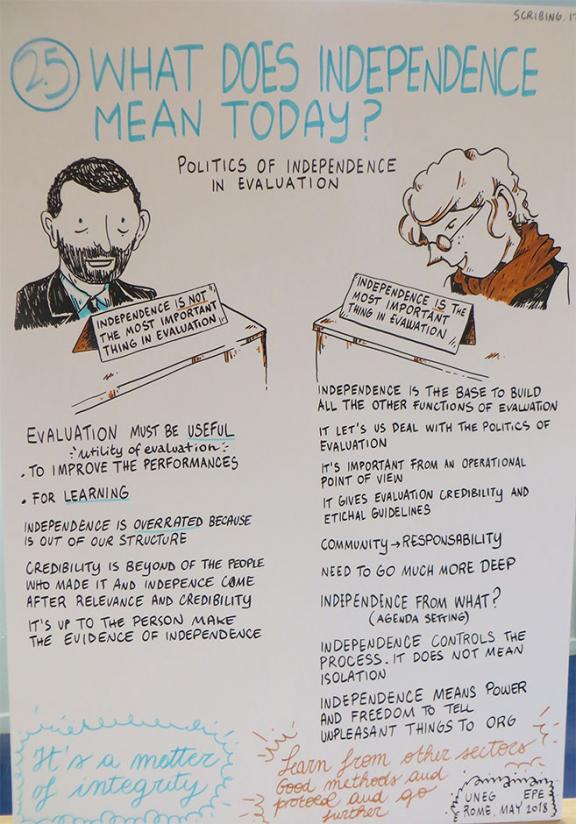 SCRIBING.IT
2.5
WHAT DOES INDEPENDENCE
MEAN TODAY?
POLITICS OF INDEPENDENCE
IN EVALUATION
INDEPENDENCE IS NOT
THE MOST IMPORTANT
THING IN EVALUATION
EVALUATION MUST BE USEFUL
utility of evaluation
. TO IMPROVE THE PERFORMANCES
. FOR LEARNING
INDEPENDENCE IS OVERRATED BECAUSE
IS OUT OF OUR STRUCTURE
CREDIBILITY IS BEYOND OF THE PEOPLE
WHO MADE IT AND INDEPENCE COME
AFTER RELEVANCE AND CREDIBILITY
IT'S UP TO THE PERSON MAKE
THE EVIDENCE OF INDEPENDENCE
It's a matter
of integrity
INDEPENDENCE IS THE
MOST IMPORTANT
THING IN EVALUATION
INDEPENDENCE IS THE BASE TO BUILD
ALL THE OTHER FUNCTIONS OF EVALUATION
IT LET'S US DEAL WITH THE POLITICS OF
EVALUATION
IT'S IMPORTANT FROM AN OPERATIONAL
POINT OF VIEW
IT GIVES EVALUATION CREDIBILITY AND
ETICHAL GUIDELINES
COMMUNITY → RESPONSABILITY
NEED TO GO MUCH MORE DEEP
INDEPENDENCE FROM WHAT?
(AGENDA SETTING)
INDEPENDENCE CONTROLS THE
PROCESS. IT DOES NOT MEAN
ISOLATION
INDEPENDENCE MEANS POWER
AND FREEDOM TO TELL
UNPLEASANT THINGS TO ORG
Learn from other sectors
Good methods and
and go
further
UNEG EPE
ROME, MAY 2018